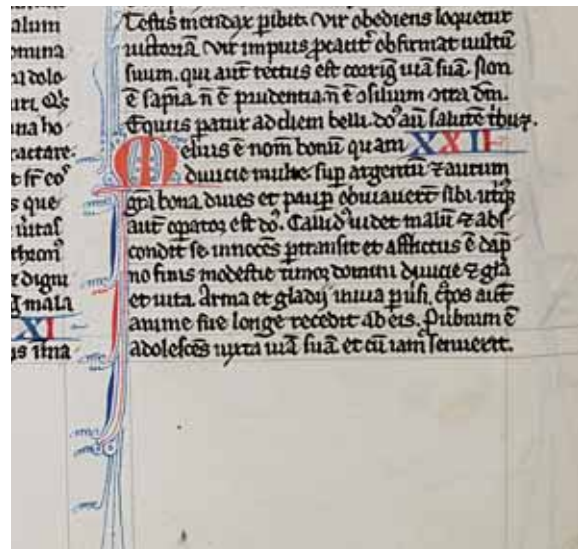 alum
omina
a dolo
ina ho
ractare.
s que
digni
mala
XI
Testis mendax ꝑibit. Vir obediens loquetur
uictoriā. Vir impius ꝓcaciť obfirmat uultū
suum. qui auť rectus est corrigͭ uiā suā. Non
ē sapīa. n̄ ē prudentia. n̄ ē ꝯsilium ꝯtra dm̄.
Equus paratur ad diem belli. do⁹ aū salutē tbuᷓ.
Melius ē nom̄ bonū quam XXII
diuicie multe. suꝑ argentū ⁊ aurum
grā bona. diues et pauꝑ obuiauerť sibi. utꝰqꝫ
auť oꝑator est do⁹. Callidꝰ uidet malū ⁊ abs
condit se. innocēs ꝑtransiit et afflictus ē dāp
no. finis modestie timor domini diuicie ⁊ glā
et uita. Arma et gladij in uia ꝑusi. c̄tos auť
anime sue longe recedit ab eis. Ꝓuerbium ē
adolescēs iuxta uiā suā et cū iam senuerit.